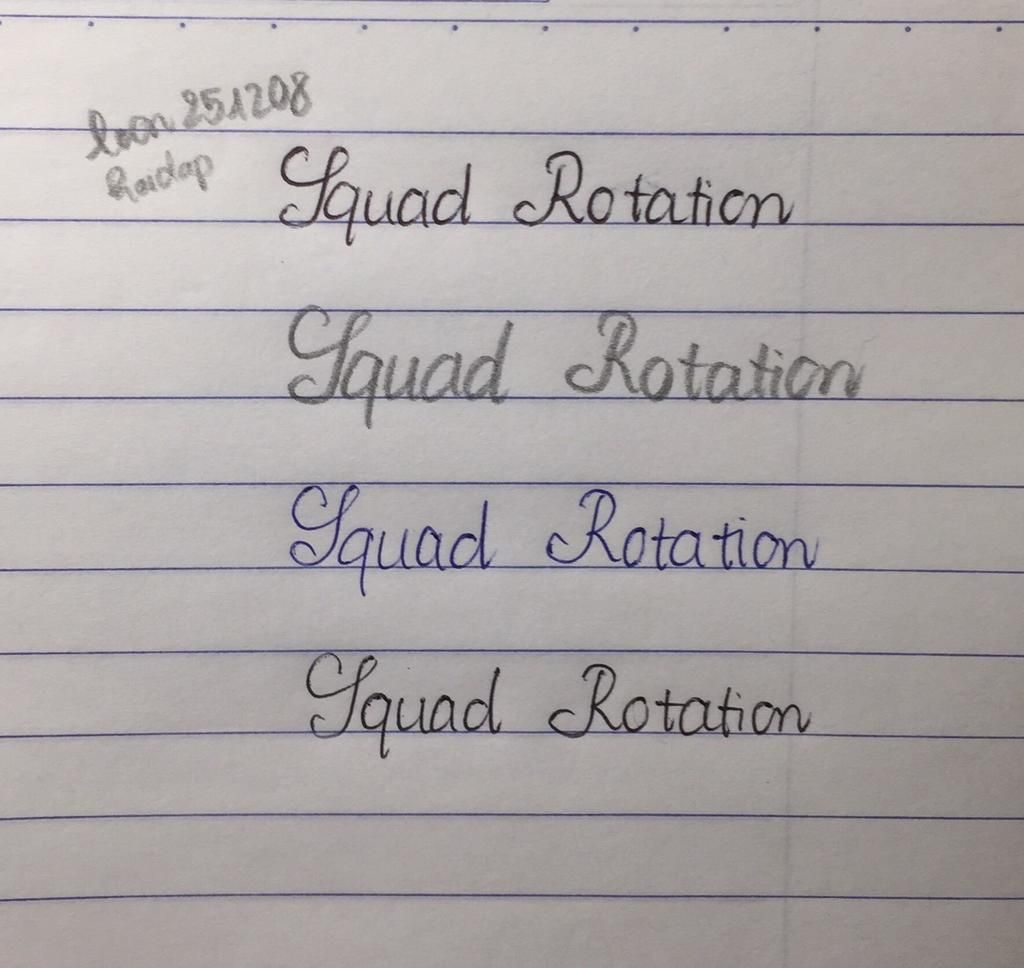 leon 251208
Raidap
Squad Rotation
Squad Rotation
Squad Rotation
Squad Rotation